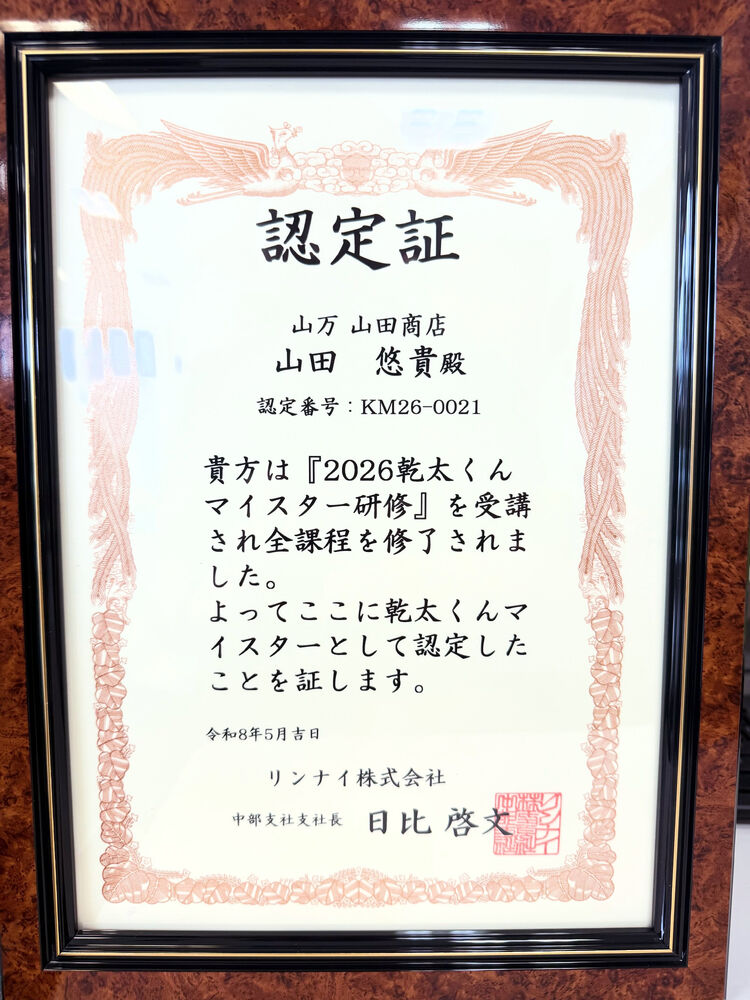 認定証
山万 山田商店
山田　悠貴殿
認定番号：KM26-0021
貴方は『2026乾太くん
マイスター研修』を受講
され全課程を修了されま
した。
よってここに乾太くんマ
イスターとして認定した
ことを証します。
令和8年5月吉日
リンナイ株式会社
中部支社支社長 日比 啓文